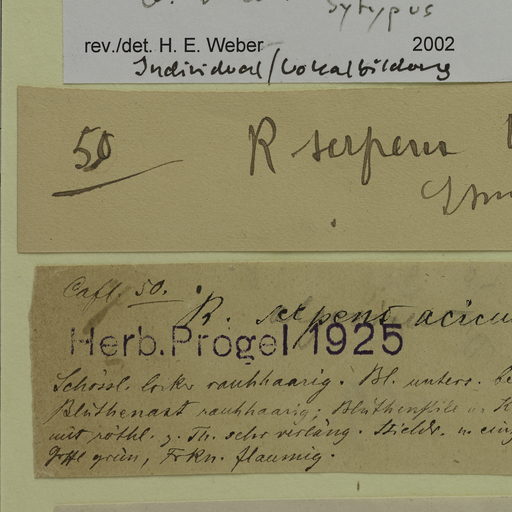 Sytypus
rev./det. H. E. Weber 2002
Individual/Lokalbildung
50 R serpens
Cafl. 50.
R. serpens acicu
Herb. Progel 1925
Schössl. locker rauhhaarig. Bl. unters. be
Blüthenast rauhhaarig; Blüthenstile u. K
mit röthl. z. Th. sehr verläng. Stieldr. u. ein
Grffl grün, Frkn. flaumig.